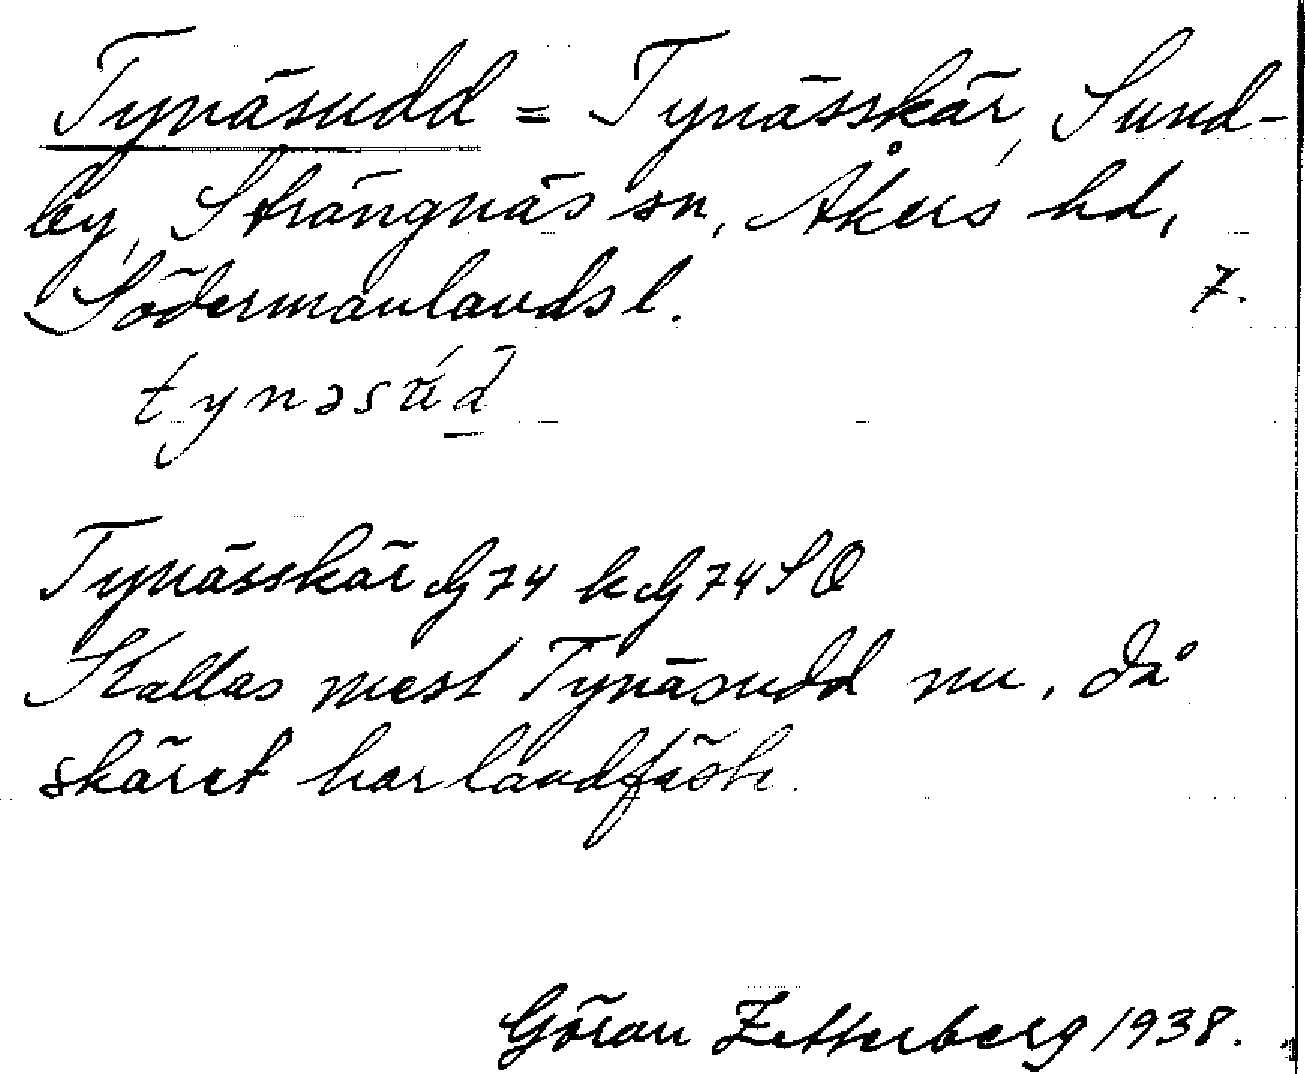 Tynäsudd = Tynässkär, Sund-
by, Strängnäs sn, Åkers hd,
Södermanlands l. 7.
tynəsúd
Tynässkär G 74 k G 74 SO
Kallas mest Tynäsudd nu, då
skäret har landfäste.
Göran Zetterberg 1938.